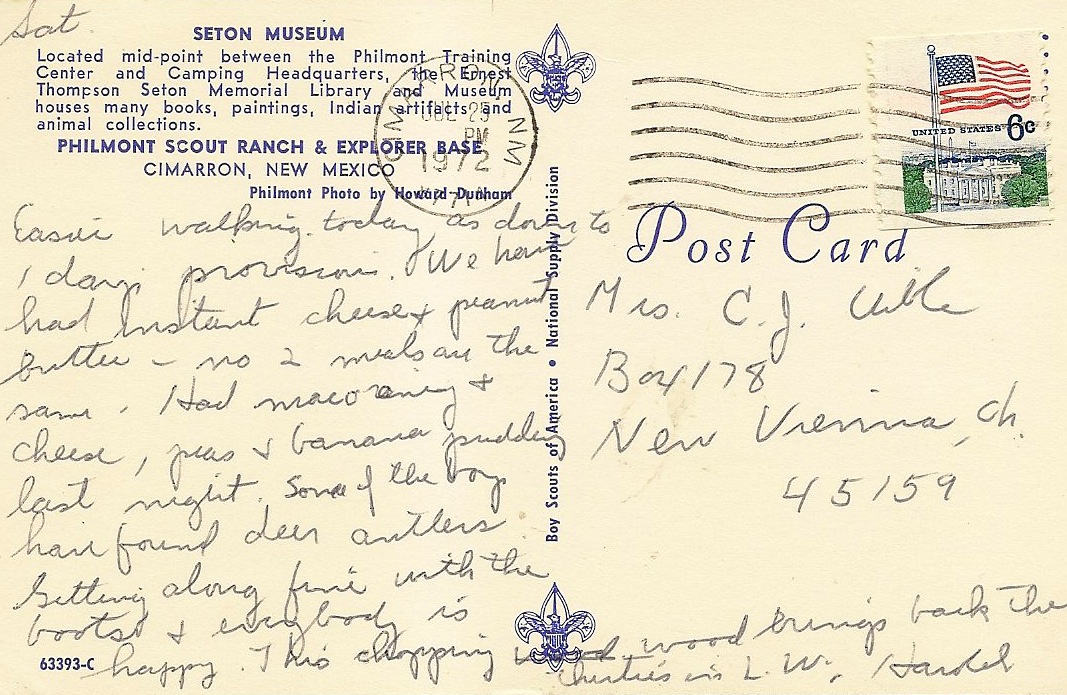 Sat.
SETON MUSEUM
Located mid-point between the Philmont Training
Center and Camping Headquarters, the Ernest
Thompson Seton Memorial Library and Museum
houses many books, paintings, Indian artifacts and
animal collections.
PHILMONT SCOUT RANCH & EXPLORER BASE
CIMARRON, NEW MEXICO
Philmont Photo by Howard Dunham
Easier walking today as down to
1 days provisions. We have
had instant cheese & peanut
butter – no 2 meals are the
same. Had macoroney &
cheese, peas & banana pudding
last night. Some of the boys
have found deer antlers
Getting along fine with the
boots & everybody is
happy. This chopping wood brings back the
thirties in L.W.
63393-C
Boy Scouts of America • National Supply Division
CIMARRON NM
JUL 25
PM
1972
UNITED STATES 6c
Post Card
Mrs. C. J. Uible
Box 178
New Vienna, Oh.
45159